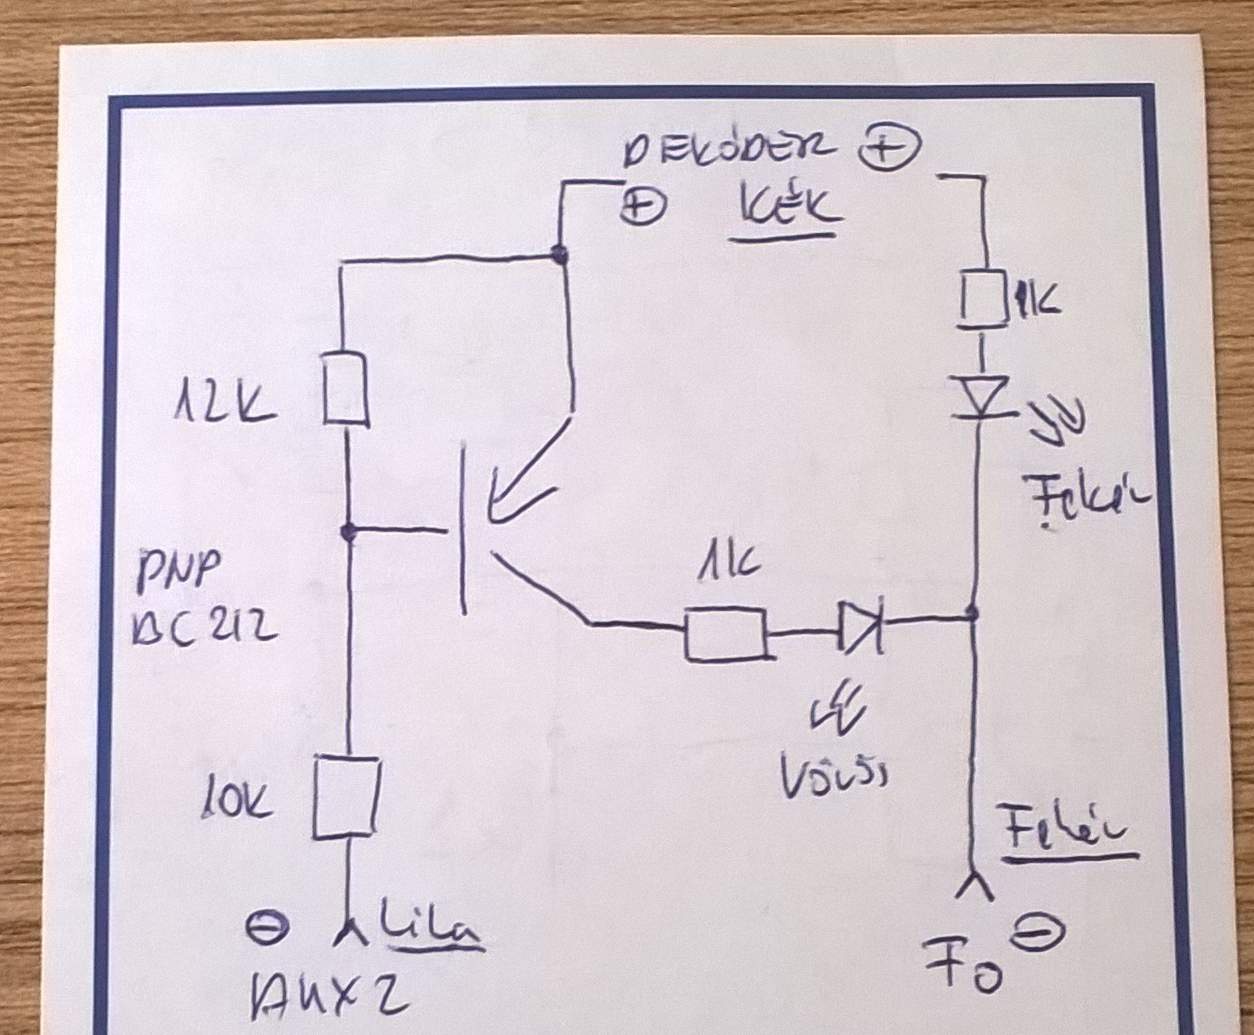 DEKÓDER +
+
KÉK
1K
12K
Fehér
1K
PNP
BC 212
Vörös
10K
Fehér
- Lila
AUX 2
F0 -